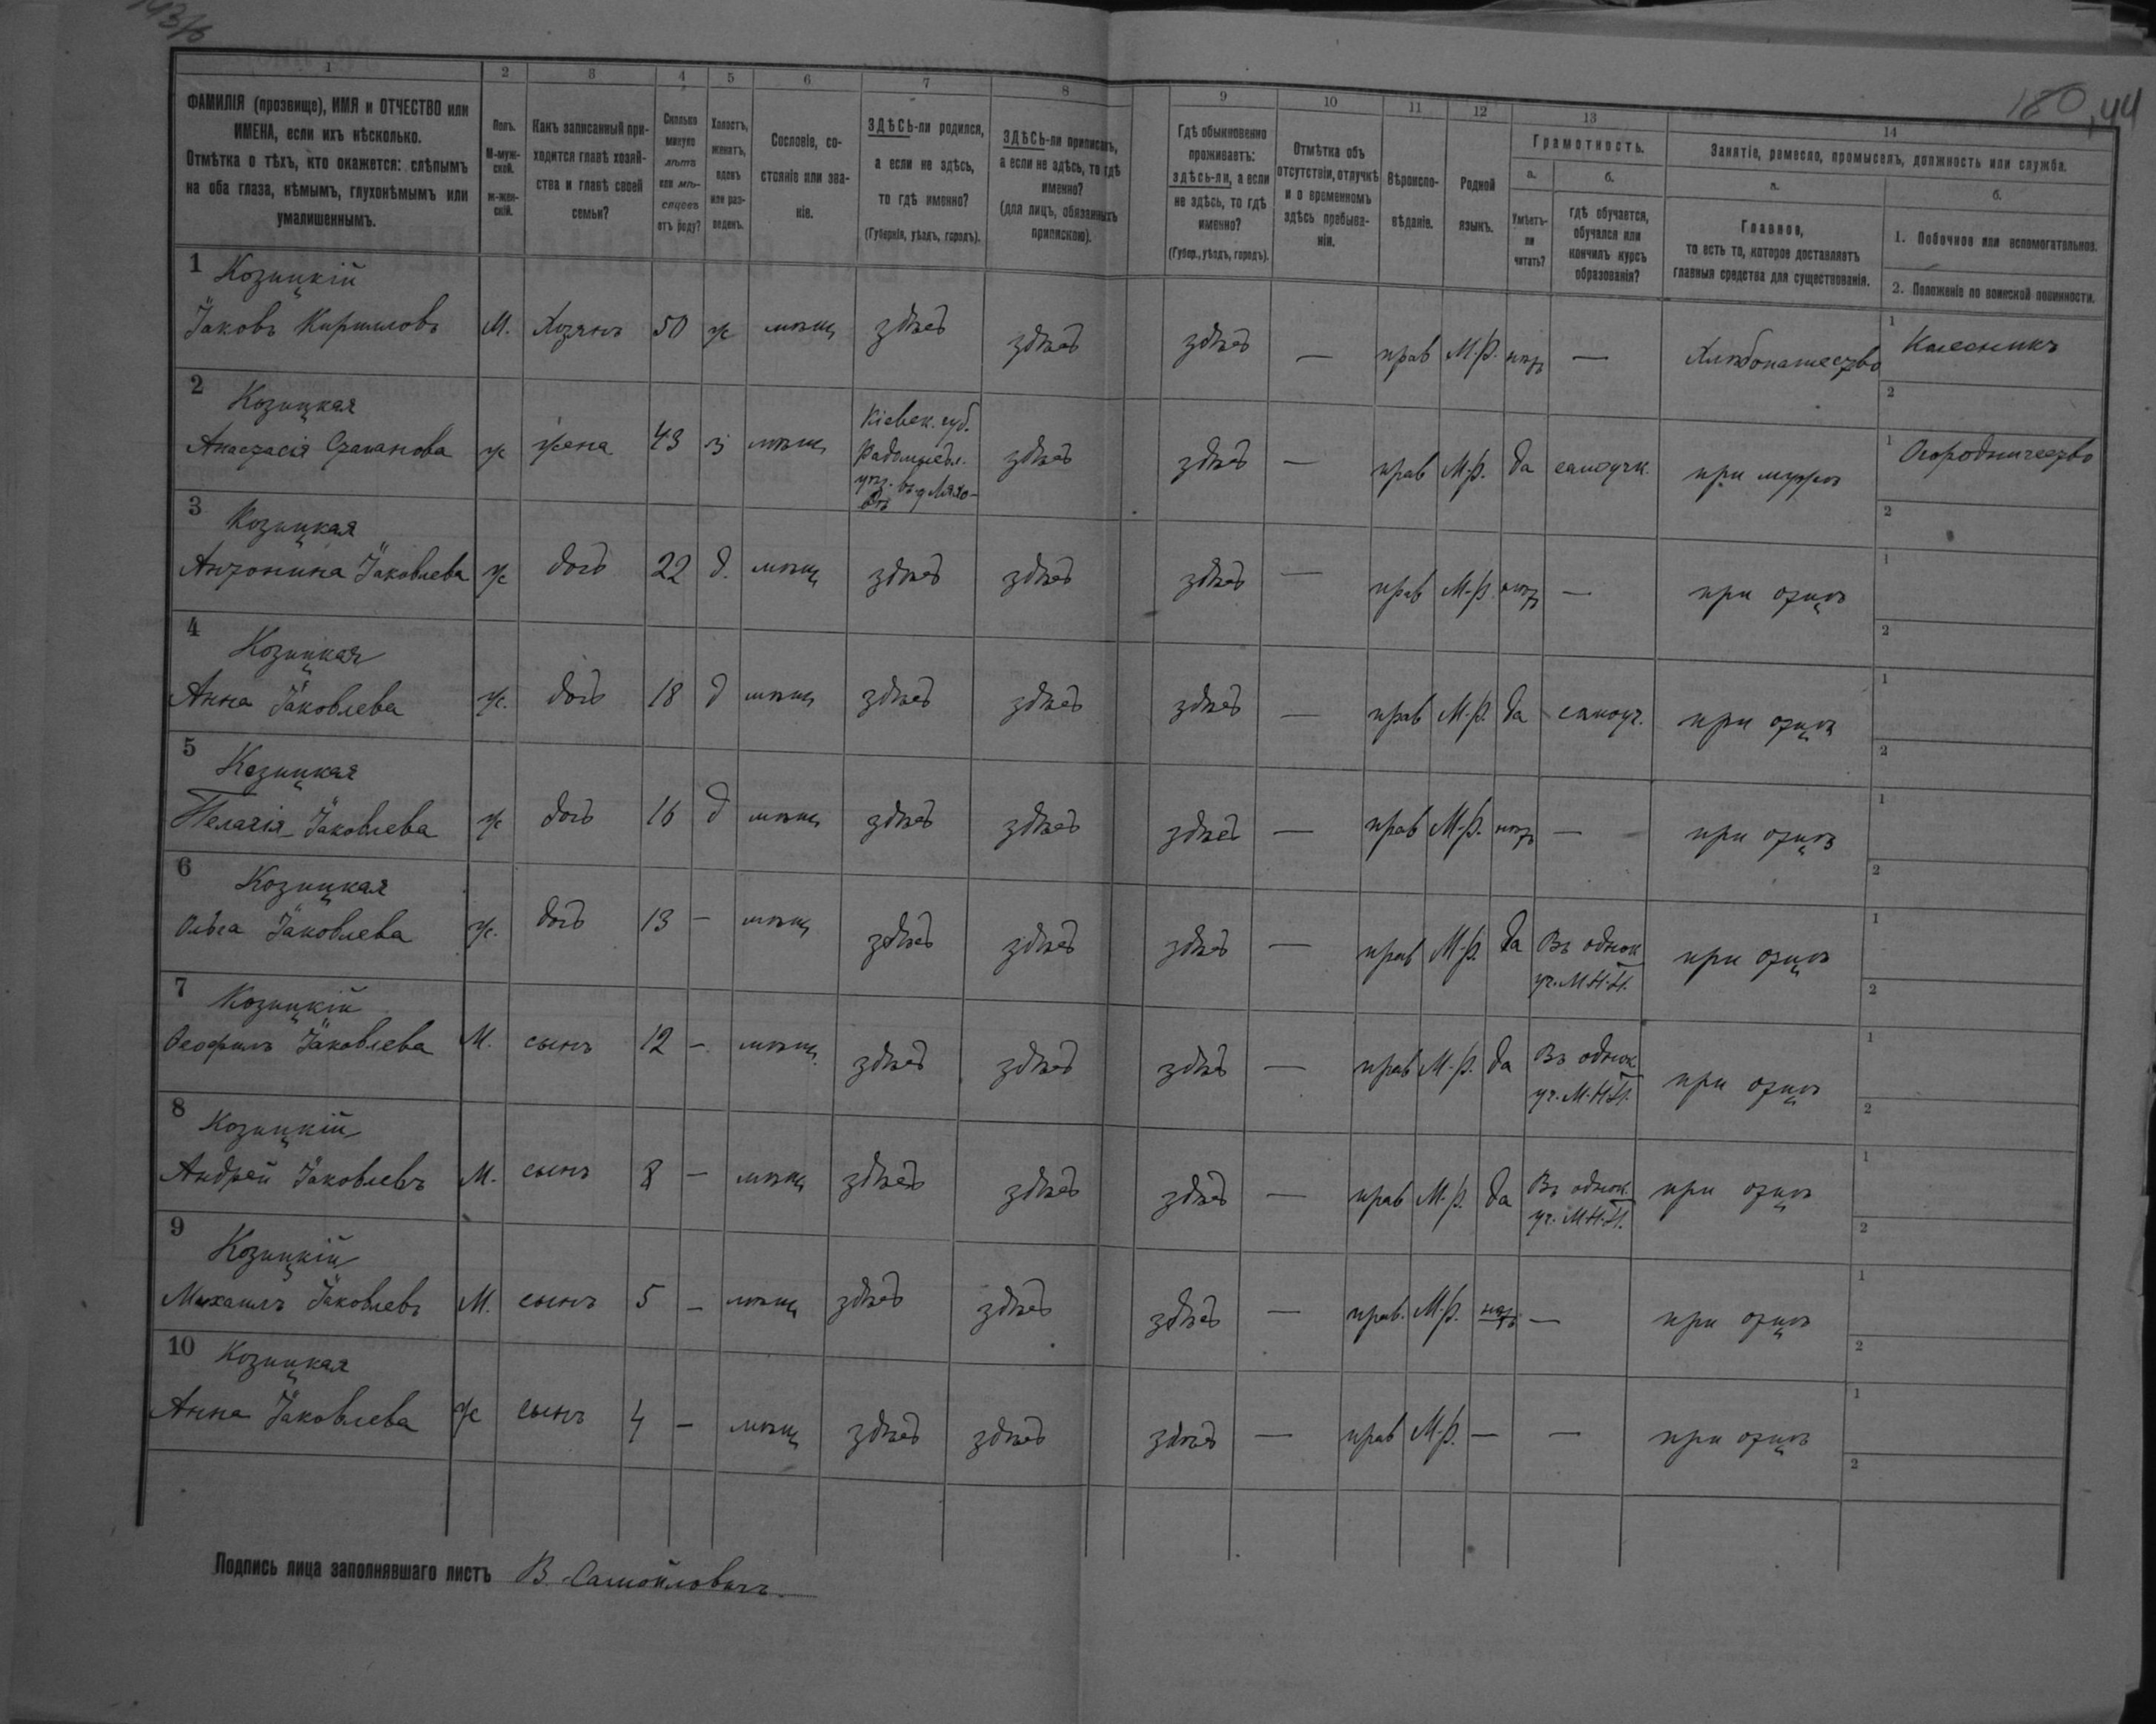 180,44
1 2 3 4 5 6 7 8 9 10 11 12 13 14
ФАМИЛІЯ (прозвище), ИМЯ и ОТЧЕСТВО или
ИМЕНА, если ихъ нѣсколько.
Отмѣтка о тѣхъ, кто окажется: слѣпымъ
на оба глаза, нѣмымъ, глухонѣмымъ или
умалишеннымъ.
Полъ.
М-муж-
ской.
ж-жен-
скій.
Какъ записанный при-
ходится главѣ хозяй-
ства и главѣ своей
семьи?
Сколько
минуло
лѣтъ
или мѣ-
сяцевъ
отъ роду?
Холостъ,
женатъ,
вдовъ
или раз-
веденъ.
Сословіе, со-
стояніе или зва-
ніе.
ЗДѢСЬ-ли родился,
а если не здѣсь,
то гдѣ именно?
(Губернія, уѣздъ, городъ).
ЗДѢСЬ-ли приписанъ,
а если не здѣсь, то гдѣ
именно?
(для лицъ, обязанныхъ
припискою).
Гдѣ обыкновенно
проживаетъ:
здѣсь-ли, а если
не здѣсь, то гдѣ
именно?
(Губер., уѣздъ, городъ).
Отмѣтка объ
отсутствіи, отлучкѣ
и о временномъ
здѣсь пребыва-
ніи.
Вѣроиспо-
вѣданіе.
Родной
языкъ.
Грамотность.
а.
Умѣетъ-
ли
читать?
б.
гдѣ обучается,
обучался или
кончилъ курсъ
образованія?
Занятіе, ремесло, промыселъ, должность или служба.
а.
Главное,
то есть то, которое доставляетъ
главныя средства для существованія.
б.
1. Побочное или вспомогательное.
2. Положеніе по воинской повинности.
1 Козицкій
Іаковъ Кирилловъ М. Хозяинъ 50 ж мѣщ здѣсь здѣсь здѣсь — прав М-р. нѣтъ — Хлѣбопашество 1 Колесникъ
2
2 Козицкая
Анастасія Степанова ж жена 43 з мѣщ Кіевск. губ.
Радомысл.
уѣз. въ
здѣсь здѣсь — прав М-р. да самоучк. при мужѣ 1 Огородничество
2
3 Козицкая
Антонина Іаковлева ж дочь 22 д. мѣщ здѣсь здѣсь здѣсь — прав М-р. нѣтъ — при отцѣ 1
2
4 Козицкая
Анна Іаковлева ж. дочь 18 д мѣщ здѣсь здѣсь здѣсь — прав М-р. да самоуч. при отцѣ 1
2
5 Козицкая
Пелагія Іаковлева ж дочь 16 д мѣщ здѣсь здѣсь здѣсь — прав М-р. нѣтъ — при отцѣ 1
2
6 Козицкая
Ольга Іаковлева ж. дочь 13 — мѣщ здѣсь здѣсь здѣсь — прав М-р. да Въ однок
уч. М.Н.П. при отцѣ 1
2
7 Козицкій
Ѳеофилъ Іаковлева М. сынъ 12 — мѣщ. здѣсь здѣсь здѣсь — прав М-р. да Въ однок
уч. М.Н.П. при отцѣ 1
2
8 Козицкій
Андрей Іаковлевъ М. сынъ 8 — мѣщ здѣсь здѣсь здѣсь — прав М-р. да Въ однок.
уч. М.Н.П. при отцѣ 1
2
9 Козицкій
Михаилъ Іаковлевъ М. сынъ 5 — мѣщ здѣсь здѣсь здѣсь — прав. М-р. нѣтъ — при отцѣ 1
2
10 Козицкая
Анна Іаковлева ж сынъ 4 — мѣщ здѣсь здѣсь здѣсь — прав М-р. — — при отцѣ 1
2
Подпись лица заполнявшаго листъ В. Самойловичъ